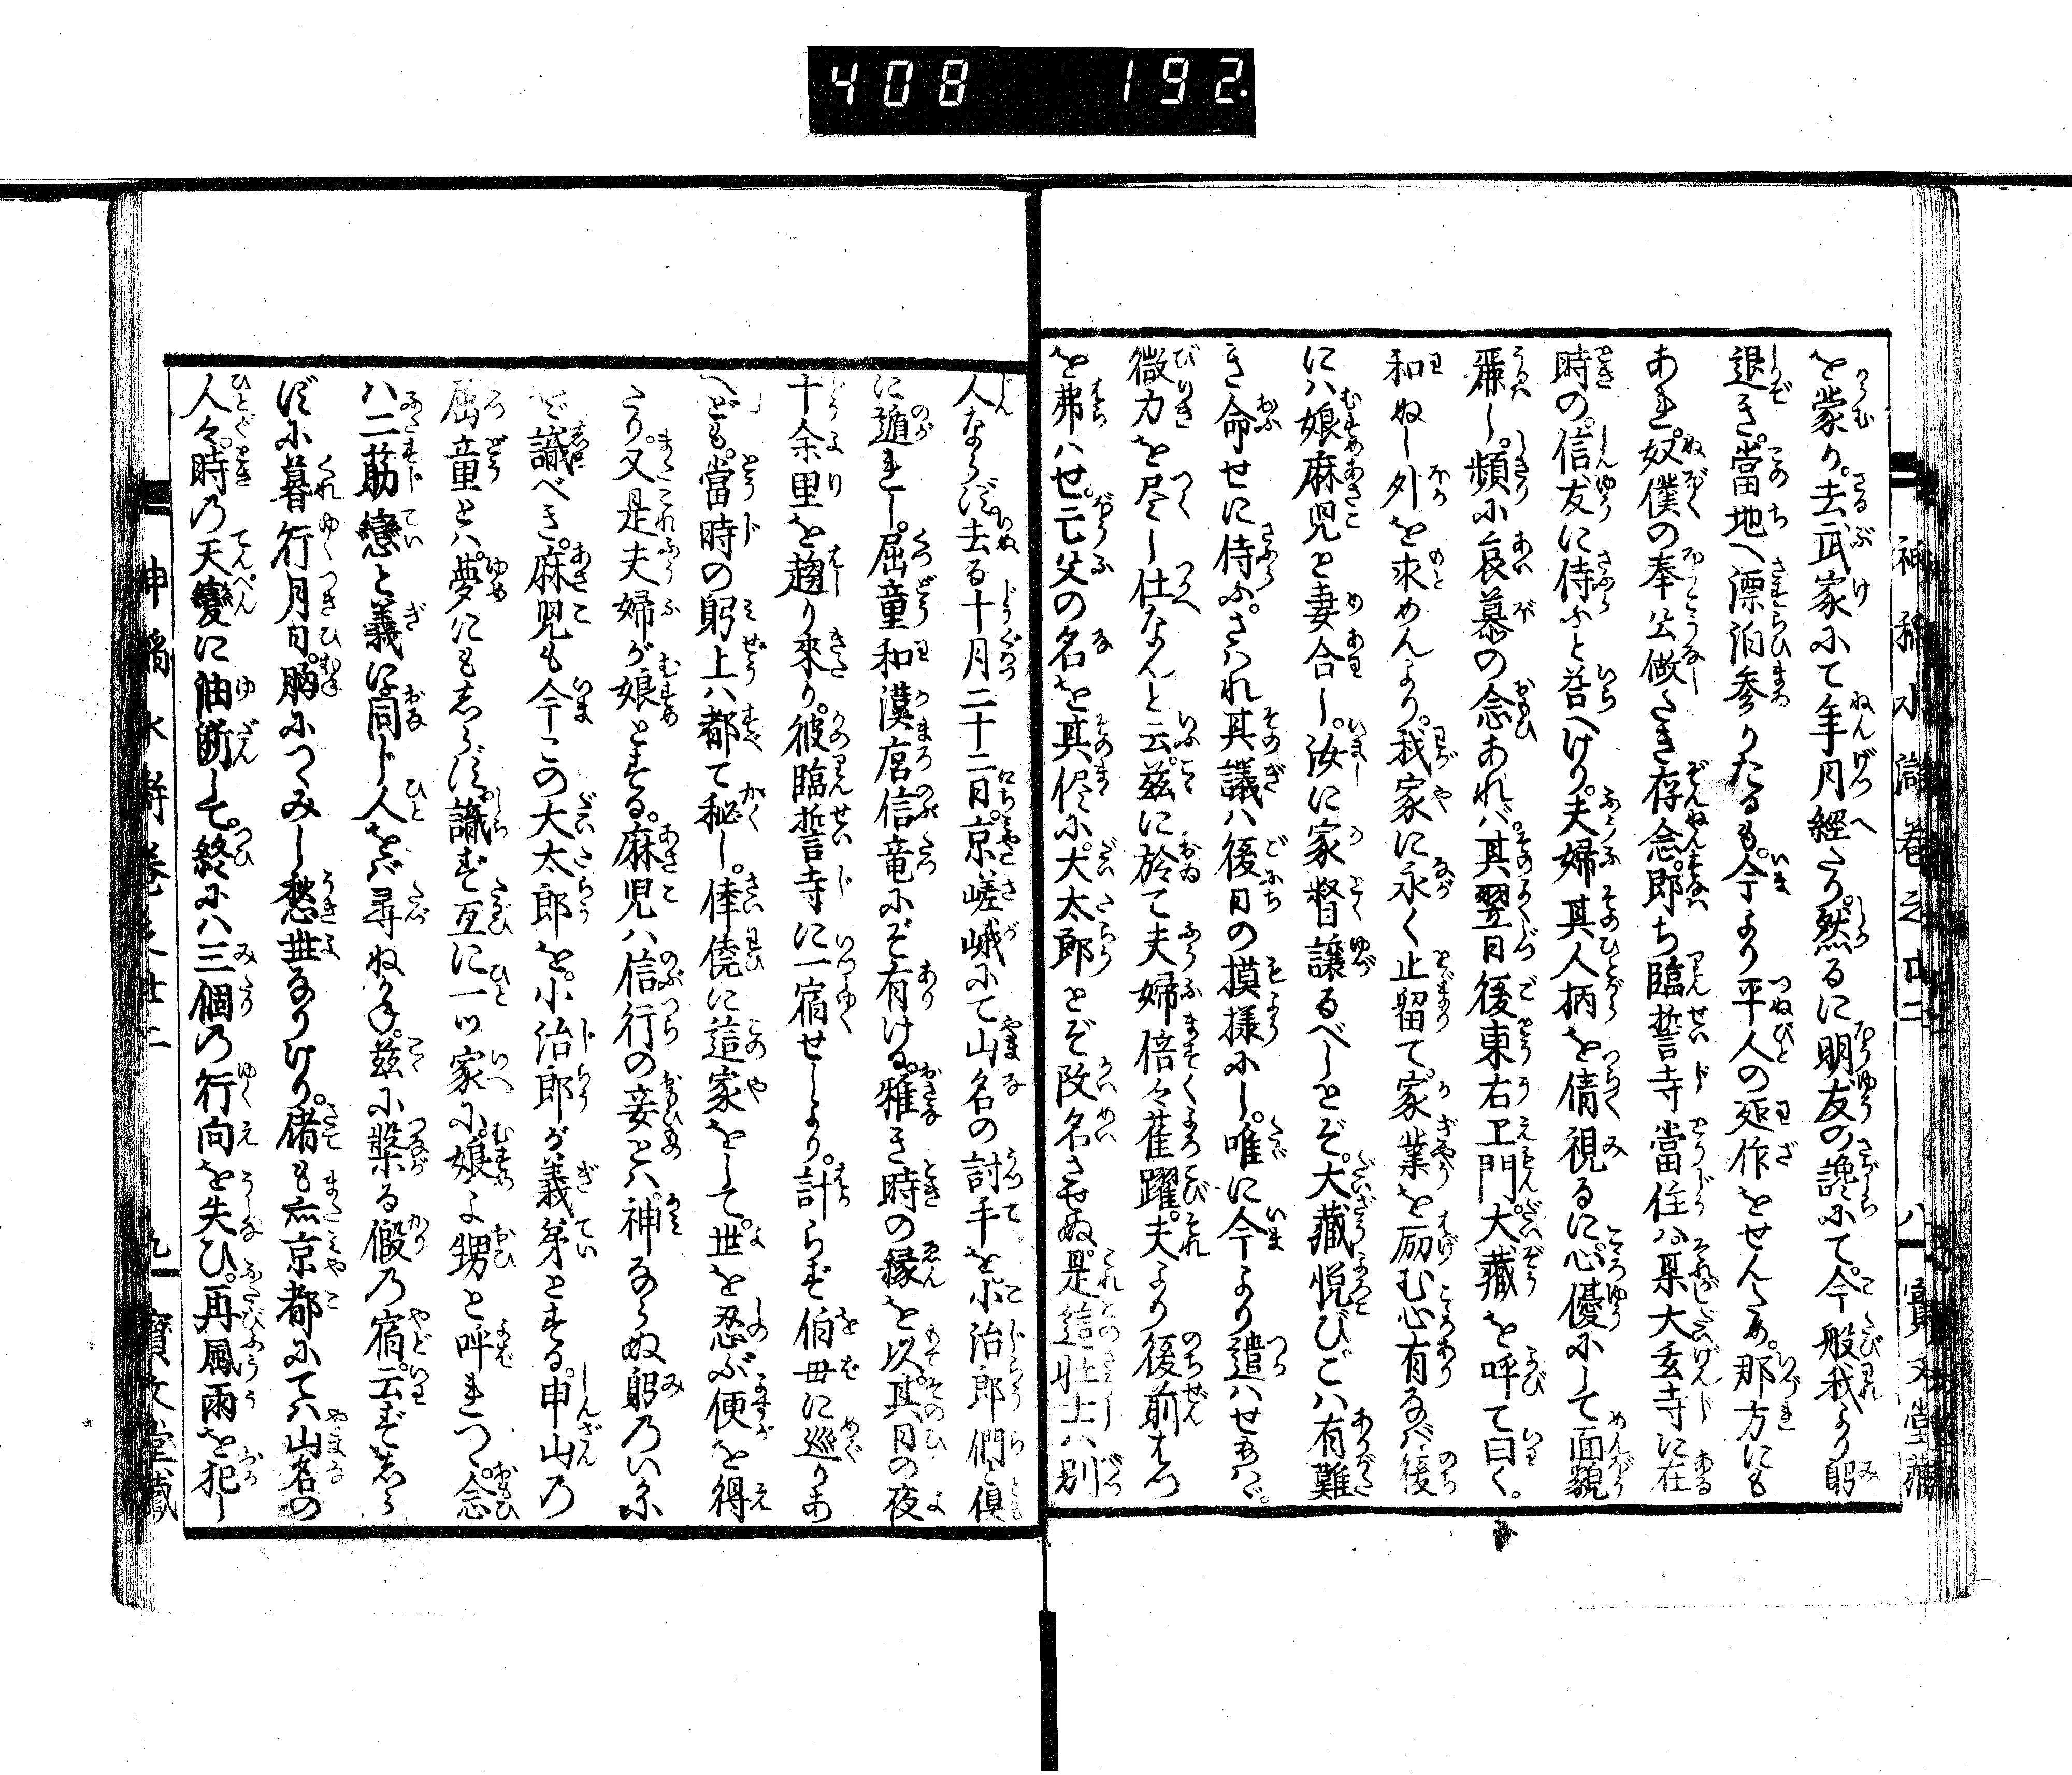 408 192.
を蒙り。去武家にて年月經たり。然るに明友の讒にて。今般我より躬
退き。當地へ漂泊参りたるも。今より平人の延作をせんため。那方にも
あれ。奴僕の奉公做たき存念。即ち臨誓寺當住ハ某大玄寺に在
時の。信友に侍ふと荅へけり。夫婦其人柄を倩視るに。心優にして面貌
麗し。頻に哀慕の念あれバ。其翌日後東右エ門。大藏を呼て曰く。
和ぬし外を求めんより。我家に永く止留て。家業を励む心有るならバ。後
にハ娘麻児と妻合し。汝に家督讓るべしとぞ。大藏悦び。こハ有難
き命せに侍ふ。さハれ其議ハ後日の摸様にし。唯に今より遣ハせ給ハゞ。
微力を尽し仕なんと云。茲に於て夫婦倍々雀躍。夫より後前はつ
を弗ハせ。亡父の名を其侭に。大太郎とぞ改名させぬ。是這壮士ハ別
人ならず。去る十月二十二日。京嵯峨にて山名の討手を。小治郎們と倶
に遁れし。屈童和漢麿信竜にぞ有ける。雅き時の縁を以。其日の夜
十余里を趨り來り。彼臨誓寺に一宿せしより。計らず伯母に巡りあ
へども。當時の躬上ハ都て秘し。倖僥に這家をして。世を忍ぶ便を得
たり。又是夫婦が娘とする。麻児ハ信行の妾とハ。神ならぬ躬乃いかに
ぞ識べき。麻児も今この大太郎を。小治郎が義弟とする。申山乃
屈童とハ。夢にもしらず。識ず互に一ツ家に。娘よ甥と呼れつゝ。念
ハ二筋戀と義に。同じ人をバ尋ねかね。茲に繋る假乃宿。云ずしら
ずに暮行月日。胸につゝみし愁世なりけり。偖も亦京都にてハ。山名の
人々。時乃天變に油断して。終にハ三個乃行向を失ひ。再風雨を犯し
神稲水滸巻之廿二 八 寳文堂藏
神稲水滸巻之廿二 九 寳文堂藏